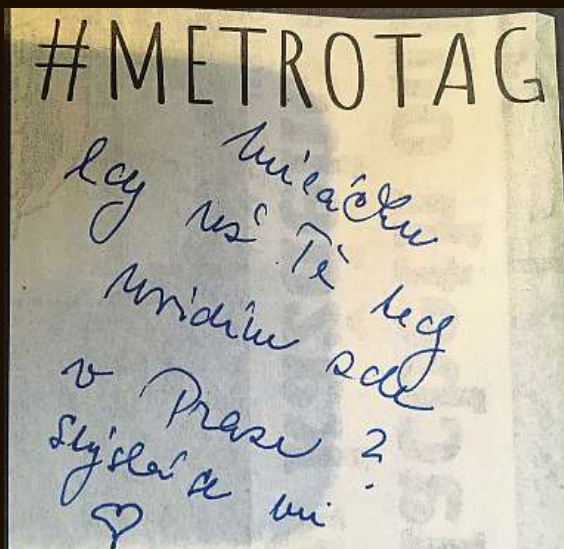 #METROTAG
Miláčku
kdy už Tě
uvidím zde
v Praze ?
Stýská se mi
♡